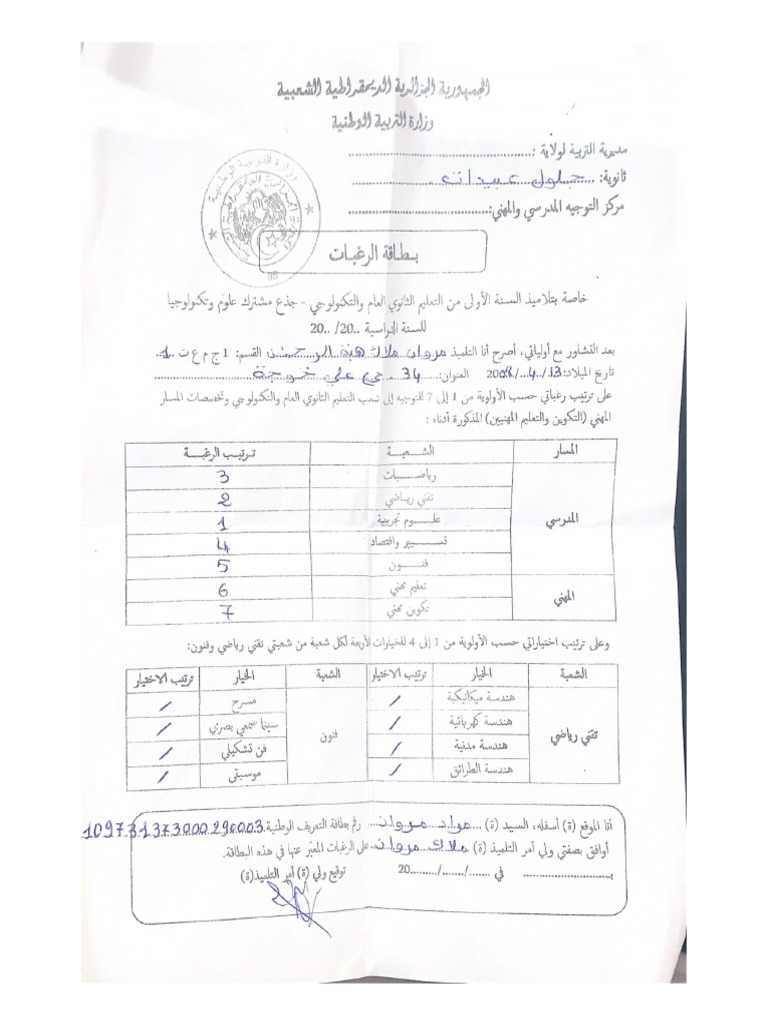 الجمهورية الجزائرية الديمقراطية الشعبية
وزارة التربية الوطنية
مديرية التربية لولاية :
ثانوية: جلول عبيدات
مركز التوجيه المدرسي والمهني:
وزارة التربية الوطنية
05
بطاقة الرغبات
خاصة بتلاميذ السنة الأولى من التعليم الثانوي العام والتكنولوجي - جذع مشترك علوم وتكنولوجيا
للسنة الدراسية 20../ 20..
بعد التشاور مع أوليائي، أصرح أنا التلميذ مروان ملاك هبة الرحمن القسم: 1 ج م ع ت 1
تاريخ الميلاد: 13/ 4 / 2008 العنوان: 34 حي علي خوجة
على ترتيب رغباتي حسب الأولوية من 1 إلى 7 للتوجيه إلى شعب التعليم الثانوي العام والتكنولوجي وتخصصات المسار
المهني (التكوين والتعليم المهنيين) المذكورة أدناه :
المسار الشعبة ترتيب الرغبة
المدرسي رياضيات 3
تقني رياضي 2
علوم تجريبية 1
تسيير واقتصاد 4
فنون 5
المهني تعليم مهني 6
تكوين مهني 7
وعلى ترتيب اختياراتي حسب الأولوية من 1 إلى 4 للخيارات لأربعة لكل شعبة من شعبتي تقني رياضي وفنون:
الشعبة الخيار ترتيب الاختيار الشعبة الخيار ترتيب الاختيار
تقني رياضي هندسة ميكانيكية / فنون مسرح /
هندسة كهربائية / سينما سمعي بصري /
هندسة مدنية / فن تشكيلي /
هندسة الطرائق / موسيقى /
أنا الموقع (ة) أسفله، السيد (ة) مراد مروان رقم بطاقة التعريف الوطنية 109731373000290003
أوافق بصفتي ولي أمر التلميذ (ة) ملاك مروان على الرغبات المعبر عنها في هذه البطاقة.
في ....../....../.........20
توقيع ولي (ة) أمر التلميذ(ة)